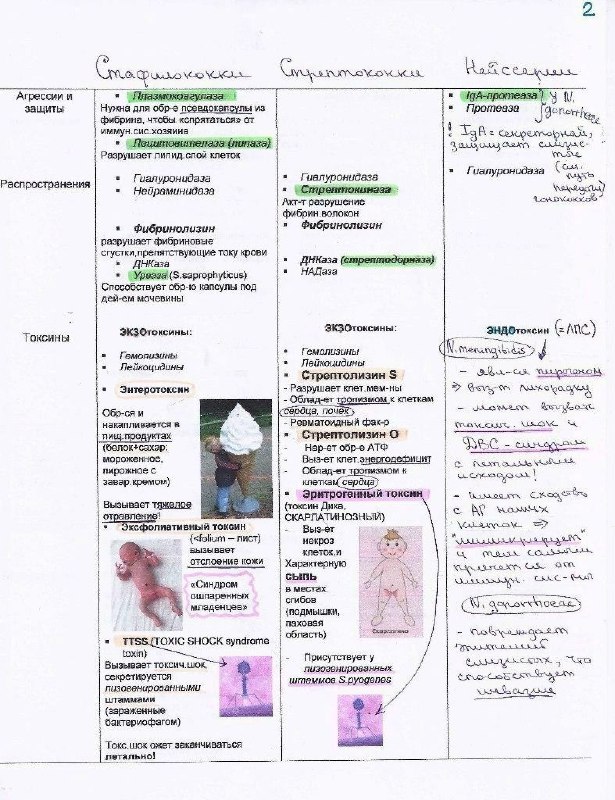 2
Стафилококки
Стрептококки
Нейссерии
Агрессии и
защиты
• Плазмокоагулаза
Нужна для обр-е псевдокапсулы из
фибрина, чтобы «спрятаться» от
иммун.сис.хозяина
• Лецитовителаза (липаза)
Разрушает липид.слой клеток
• IgA-протеаза
• Протеаза
у N.
gonorrhoeae
! IgA = секреторный,
защищает слизис-
тые
Распространения
• Гиалуронидаза
• Нейраминидаза
• Фибринолизин
разрушает фибриновые
сгустки,препятствующие току крови
• ДНКаза
• Уреаза (S.saprophyticus)
Способствует обр-ю капсулы под
дей-ем мочевины
• Гиалуронидаза
• Стрептокиназа
Акт-т разрушение
фибрин.волокон
• Фибринолизин
• ДНКаза (стрептодорназа)
• НАДаза
• Гиалуронидаза
(см.
путь
передачи
гонококков)
Токсины
ЭКЗОтоксины:
• Гемолизины
• Лейкоцидины
• Энтеротоксин
Обр-ся и
накапливается в
пищ.продуктах
(белок+сахар:
мороженное,
пирожное с
завар.кремом)
Вызывает тяжелое
отравление!
• Эксфолиативный токсин
(<folium – лист)
вызывает
отслоение кожи
«Синдром
ошпаренных
младенцев»
• TTSS (TOXIC SHOCK syndrome
toxin)
Вызывает токсич.шок,
секретируется
лизогенированными
штаммами
(зараженные
бактериофагом)
Токс.шок ожет заканчиваться
летально!
ЭКЗОтоксины:
• Гемолизины
• Лейкоцидины
• Стрептолизин S
- Разрушает клет.мем-ны
- Обладе-ет тропизмом к клеткам
сердца, почек
- Ревматоидный фак-р
• Стрептолизин О
- Нар-ет обр-е АТФ
- Выз-ет клет.энергодефицит
- Облад-ет тропизмом к
клеткам сердца
• Эритрогенный токсин
(токсин Дика,
СКАРЛАТИНОЗНЫЙ)
- Выз-ет
некроз
клеток,и
Характерную
сыпь
в местах
сгибов
(подмышки,
паховая
область)
Скарлатина
- Присутствует у
лизогенированных
штаммов S.pyogenes
ЭНДОтоксин (=ЛПС)
N. meningitidis
- явл-ся пирогеном
⇒ выз-т лихорадку
- может вызвать
токсич. шок и
ДВС-синдром
с летальным
исходом!
- имеет сходство
с АГ наших
клеток ⇒
"мимикрирует"
и тем самым
прячется от
иммун. сис-мы
N. gonorrhoeae
- повреждает
эпителий
слизистых, что
способствует
инвазии